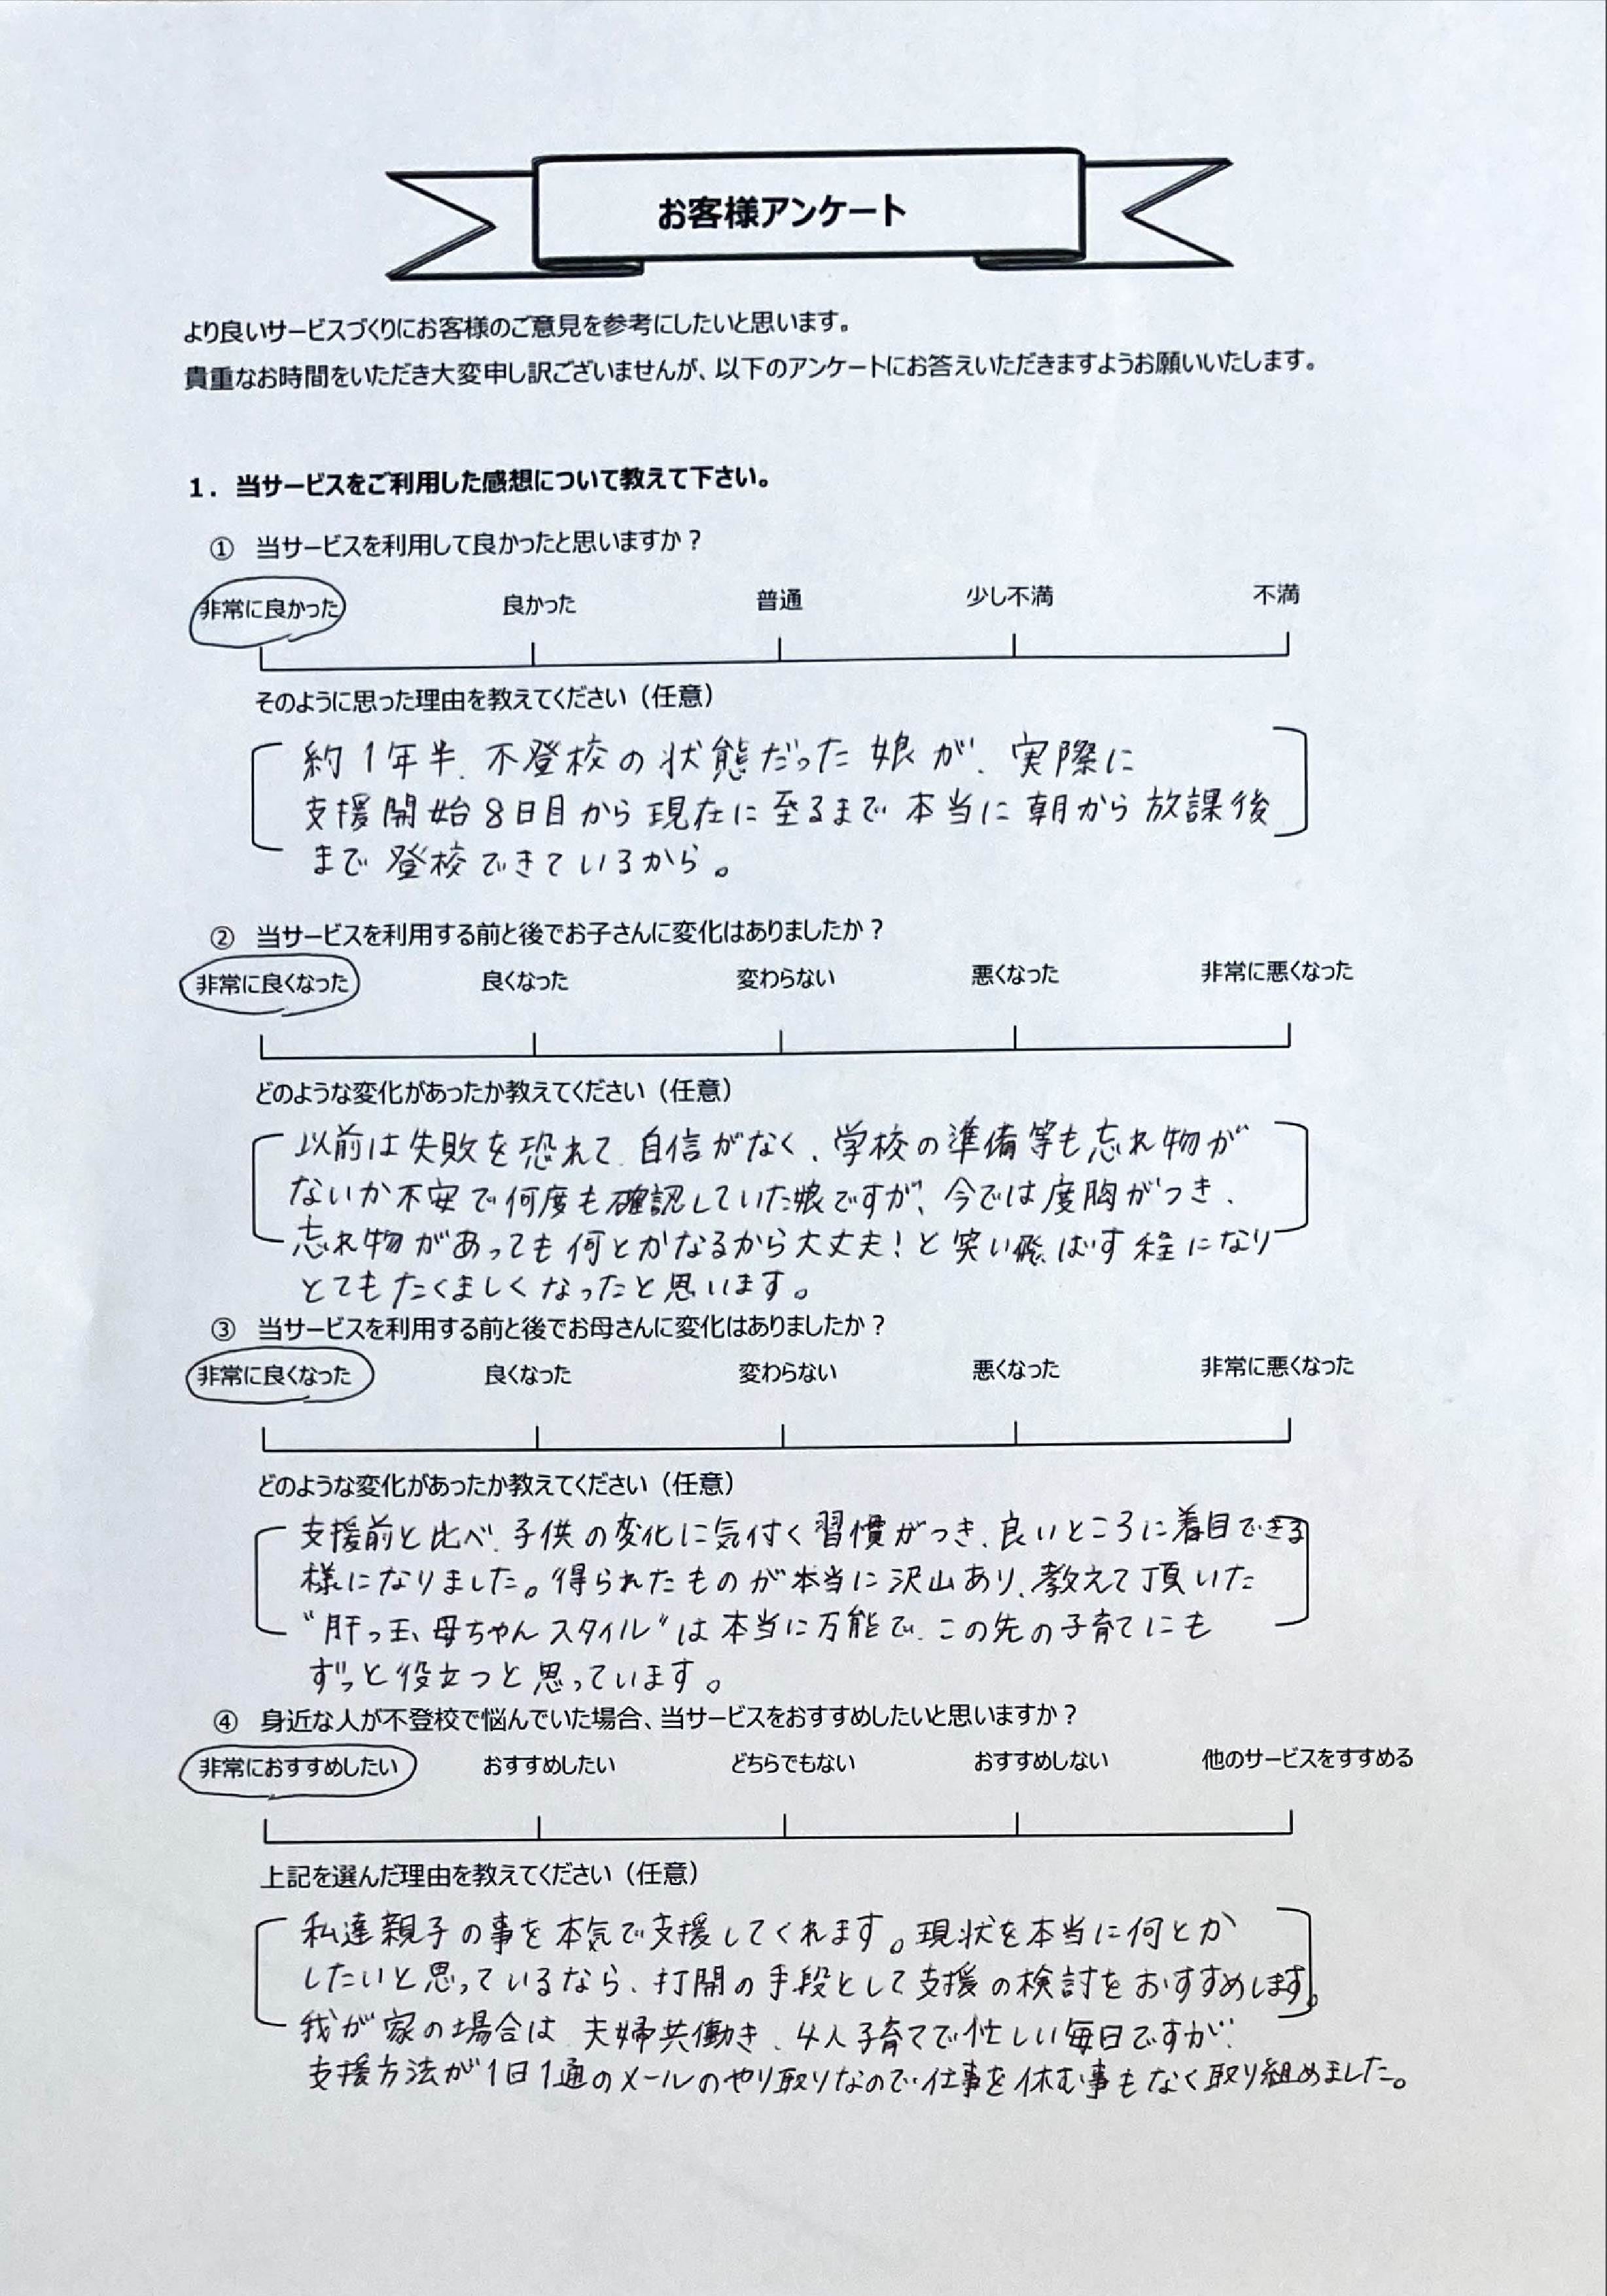 お客様アンケート
より良いサービスづくりにお客様のご意見を参考にしたいと思います。
貴重なお時間をいただき大変申し訳ございませんが、以下のアンケートにお答えいただきますようお願いいたします。
1．当サービスをご利用した感想について教えて下さい。
① 当サービスを利用して良かったと思いますか？
非常に良かった 良かった 普通 少し不満 不満
そのように思った理由を教えてください（任意）
約1年半、不登校の状態だった娘が、実際に
支援開始8日目から現在に至るまで本当に朝から放課後
まで登校できているから。
② 当サービスを利用する前と後でお子さんに変化はありましたか？
非常に良くなった 良くなった 変わらない 悪くなった 非常に悪くなった
どのような変化があったか教えてください（任意）
以前は失敗を恐れて、自信がなく、学校の準備等も忘れ物が
ないか不安で何度も確認していた娘ですが、今では度胸がつき、
忘れ物があっても何とかなるから大丈夫！と笑い飛ばす程になり
とてもたくましくなったと思います。
③ 当サービスを利用する前と後でお母さんに変化はありましたか？
非常に良くなった 良くなった 変わらない 悪くなった 非常に悪くなった
どのような変化があったか教えてください（任意）
支援前と比べ、子供の変化に気付く習慣がつき、良いところに着目できる
様になりました。得られたものが本当に沢山あり、教えて頂いた
“肝っ玉母ちゃんスタイル”は本当に万能で、この先の子育てにも
ずっと役立つと思っています。
④ 身近な人が不登校で悩んでいた場合、当サービスをおすすめしたいと思いますか？
非常におすすめしたい おすすめしたい どちらでもない おすすめしない 他のサービスをすすめる
上記を選んだ理由を教えてください（任意）
私達親子の事を本気で支援してくれます。現状を本当に何とか
したいと思っているなら、打開の手段として支援の検討をおすすめします。
我が家の場合は、夫婦共働き、4人子育てで忙しい毎日ですが、
支援方法が1日1通のメールのやり取りなので、仕事を休む事もなく取り組めました。